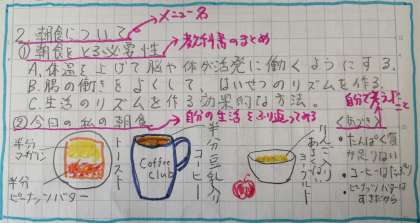 2. 朝食について
メニュー名
① 朝食をとる必要性
教科書のまとめ
A. 体温を上げて脳や体が活発に働くようにする。
B. 腸の働きをよくして、はいせつのリズムを作る。
C. 生活のリズムを作る効果的な方法。
自分で考えたこと
② 今日の私の朝食
自分の生活をふり返ってみる
半分
マーガリン
半分
ピーナッツバター
トースト
Coffee
Club
半分豆乳入り
コーヒー
りんご入り
ヨーグルト
・たんぱく質
が足りない
・コーヒーは
・ピーナッツバターは